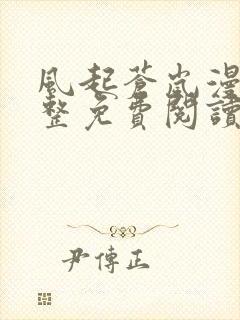 風起蒼嵐漫
整免費閱讀
尹傳正